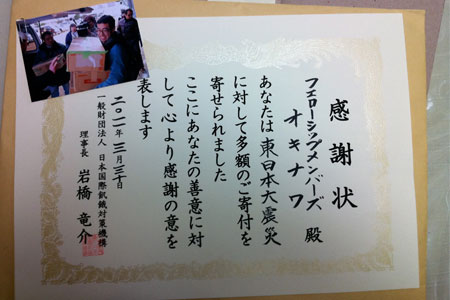 感謝状
フェローシップメンバーズ
オキナワ 殿
あなたは東日本大震災
に対して多額のご寄付を
寄せられました
ここにあなたの善意に対
して心より感謝の意を
表します
二〇一一年 三月三十日
一般財団法人 日本国際飢餓対策機構
理事長 岩橋 竜介